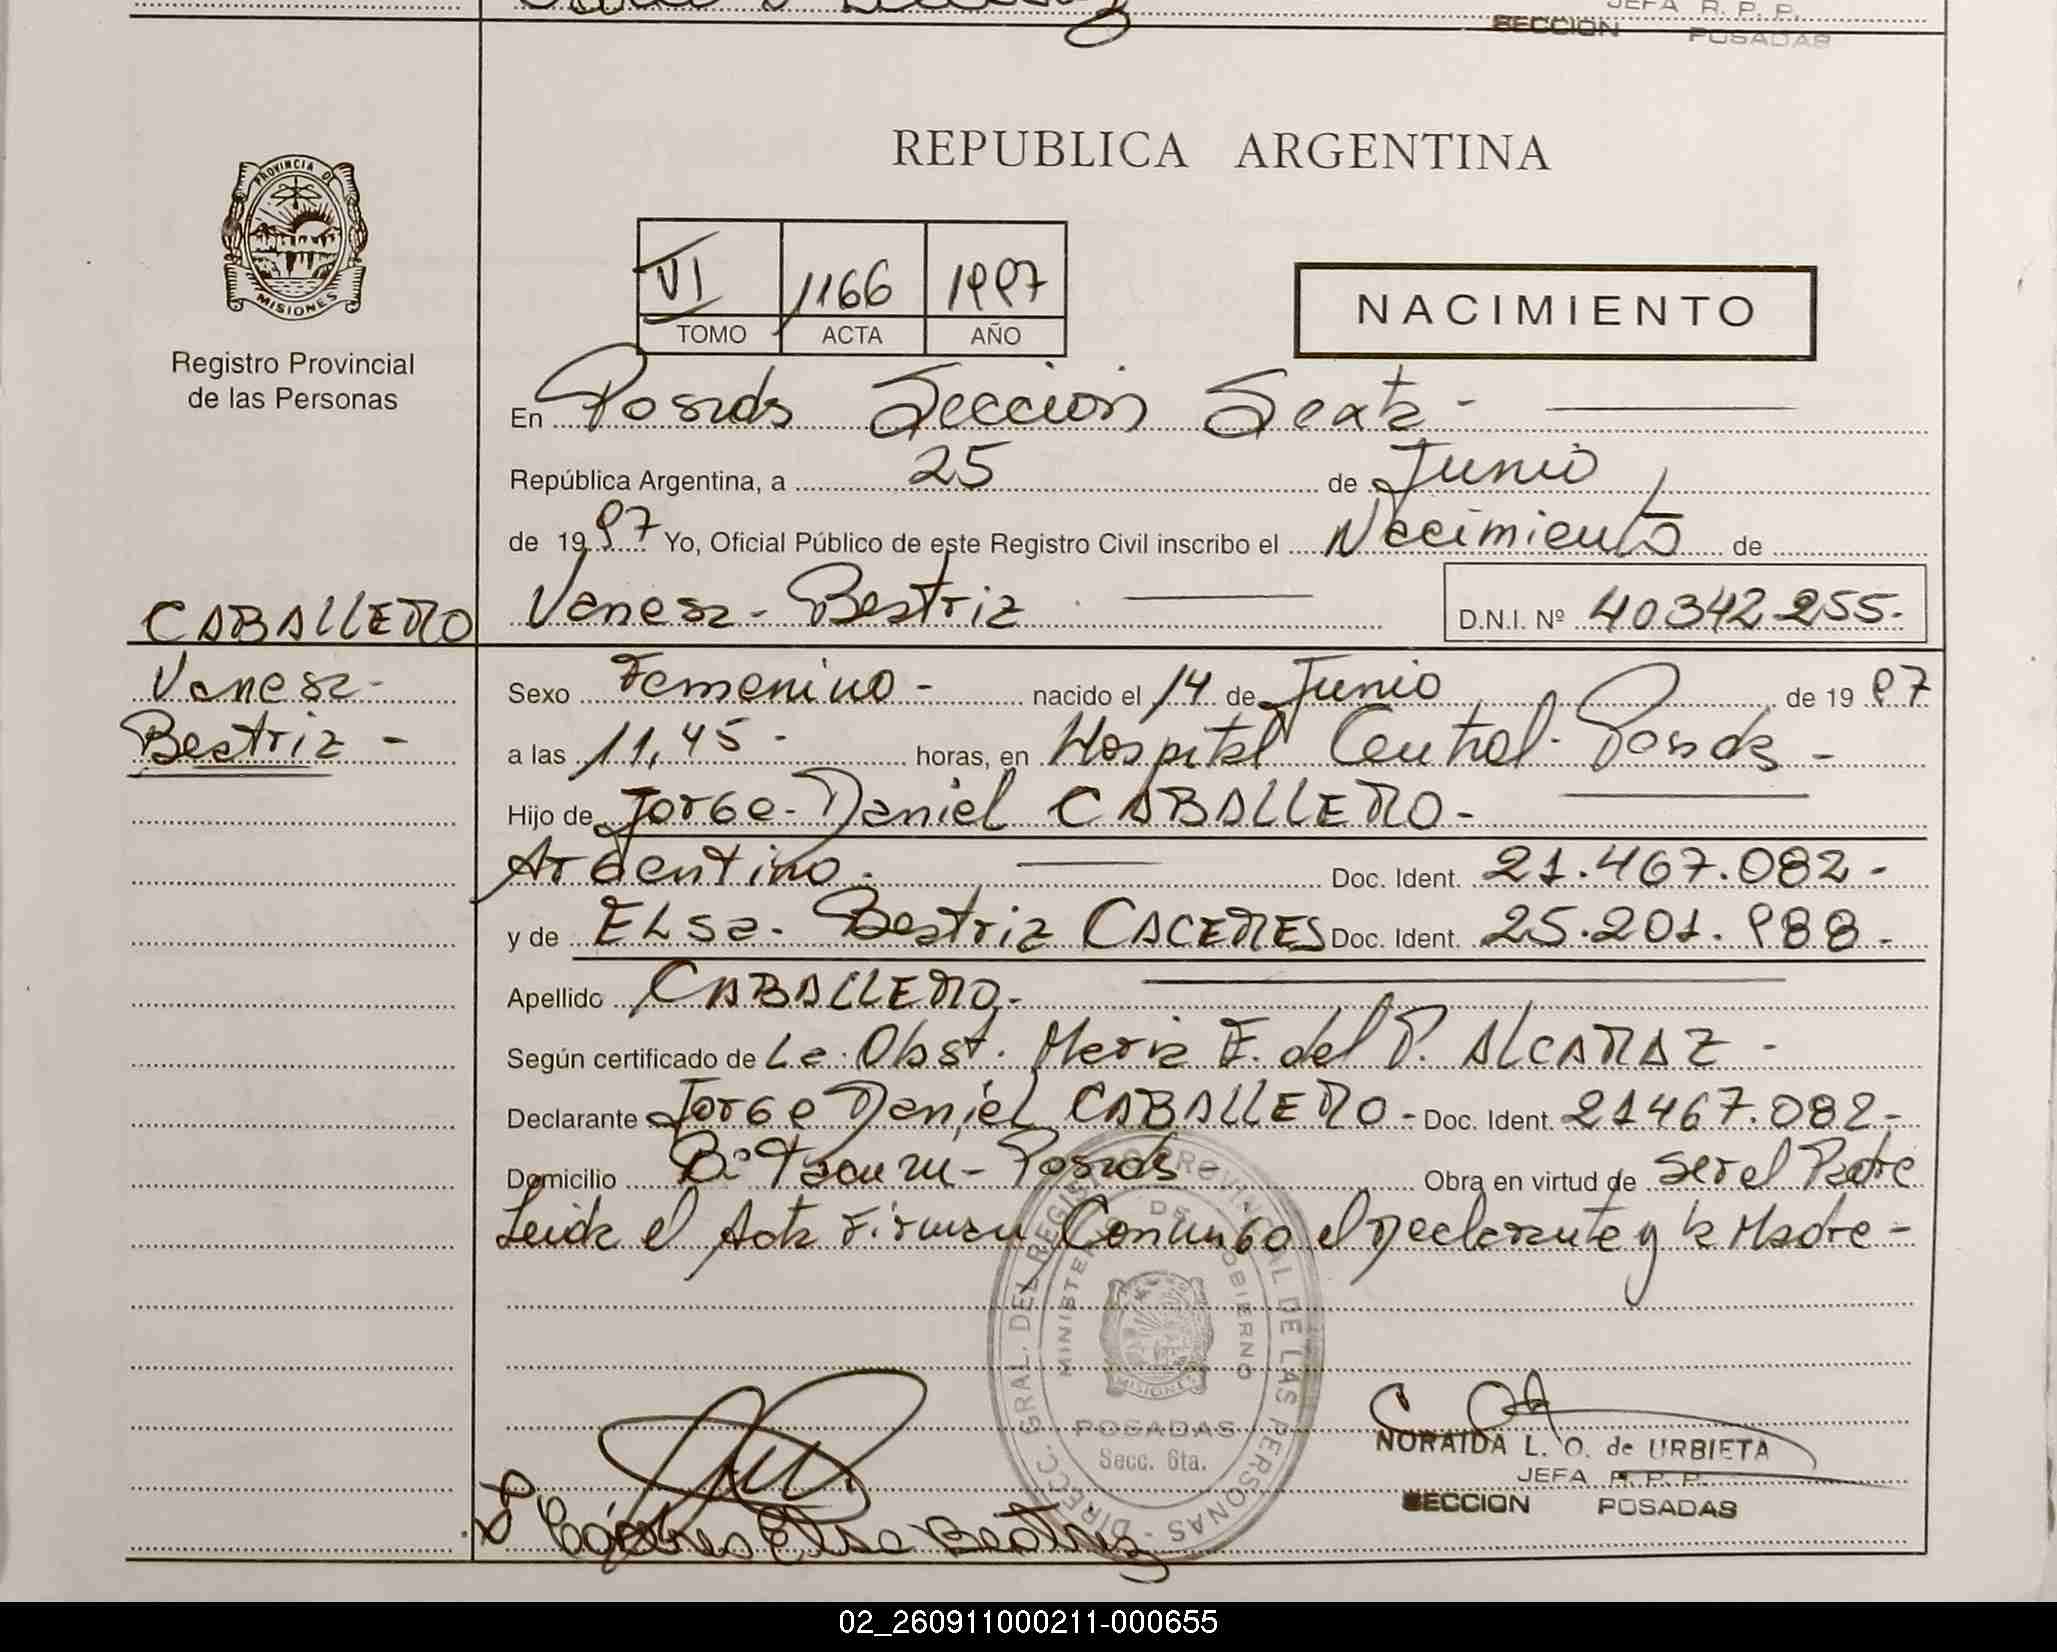 JEFA R. P. P.
SECCION POSADAS
REPUBLICA ARGENTINA
PROVINCIA DE
MISIONES
Registro Provincial
de las Personas
VI 1166 1997
TOMO ACTA AÑO
NACIMIENTO
En Posadas Sección Sexta -
República Argentina, a 25 de Junio
de 1997 Yo, Oficial Público de este Registro Civil inscribo el Nacimiento de
CABALLERO Vanesa - Beatriz D.N.I. Nº 40342.255.
Vanesa - Sexo Femenino - nacido el 14 de Junio de 1997
Beatriz - a las 11,45 - horas, en Hospital Central - Posadas -
Hijo de Jorge - Daniel CABALLERO -
Argentino - Doc. Ident. 21.467.082 -
y de Elsa - Beatriz CACERES Doc. Ident. 25.201.988 -
Apellido CABALLERO -
Según certificado de La Obst. Maria E. del P. ALCARAZ -
Declarante Jorge Daniel CABALLERO - Doc. Ident. 21467.082 -
Domicilio Bº Yacuzu - Posadas - Obra en virtud de ser el Padre
Leida el Acta Firman Conmigo el Declarante y la Madre -
DIRECC. GRAL. DEL REGISTRO PROVINCIAL DE LAS PERSONAS -
MINISTERIO DE GOBIERNO
MISIONES
POSADAS
Secc. 6ta.
NORAIDA L. O. de URBIETA
JEFA R. P. P.
SECCION POSADAS
Cáceres Elsa Beatriz
02_260911000211-000655